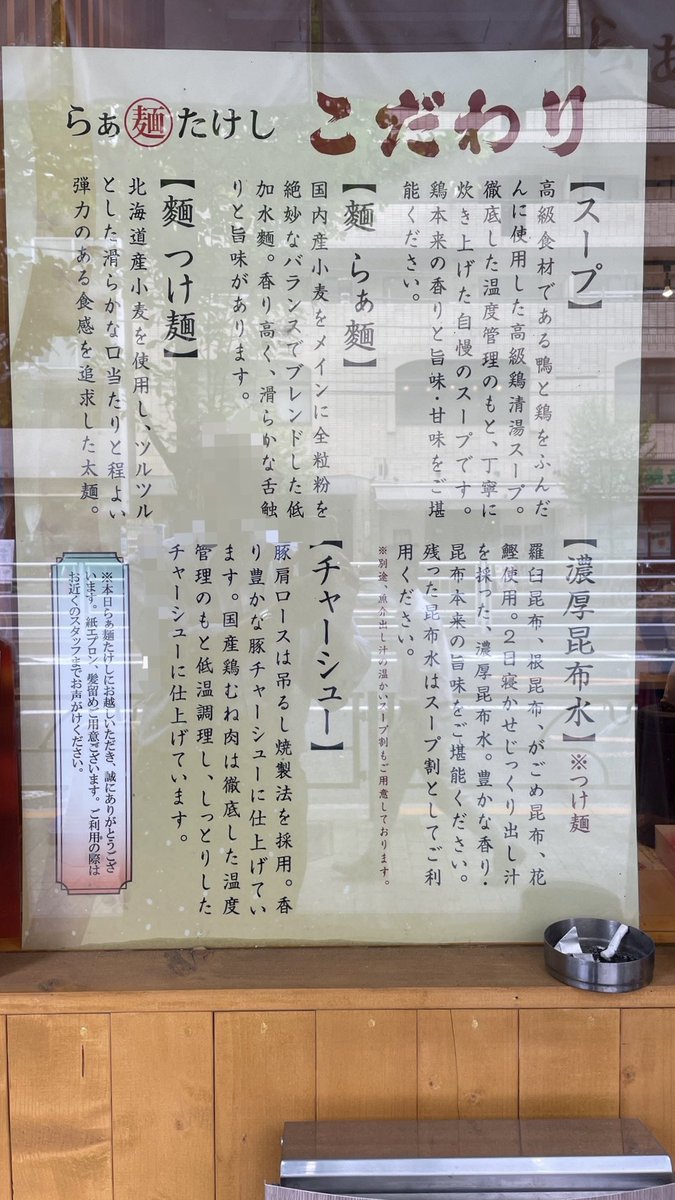 らぁ麺たけし
こだわり
【スープ】
高級食材である鴨と鶏をふんだ
んに使用した高級鶏清湯スープ。
徹底した温度管理のもと、丁寧に
炊き上げた自慢のスープです。
鶏本来の香りと旨味・甘味をご堪
能ください。
【麵 らぁ麵】
国内産小麦をメインに全粒粉を
絶妙なバランスでブレンドした低
加水麵。香り高く、滑らかな舌触
りと旨味があります。
【麵 つけ麺】
北海道産小麦を使用し、ツルツル
とした滑らかな口当たりと程よい
弾力のある食感を追求した太麺。
【濃厚昆布水】※つけ麺
羅臼昆布、根昆布、がごめ昆布、花
鰹使用。2日寝かせじっくり出し汁
を採った、濃厚昆布水。豊かな香り・
昆布本来の旨味をご堪能ください。
残った昆布水はスープ割としてご利
用ください。
※別途、魚介出し汁の温かいスープ割もご用意しております。
【チャーシュー】
豚肩ロースは吊るし焼製法を採用。香
り豊かな豚チャーシューに仕上げてい
ます。国産鶏むね肉は徹底した温度
管理のもと低温調理し、しっとりした
チャーシューに仕上げています。
※本日らぁ麺たけしにお越しいただき、誠にありがとうござ
います。紙エプロン、髪留めご用意ございます。ご利用の際は
お近くのスタッフまでお声がけください。